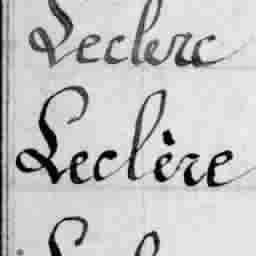 Leclerc
Leclère